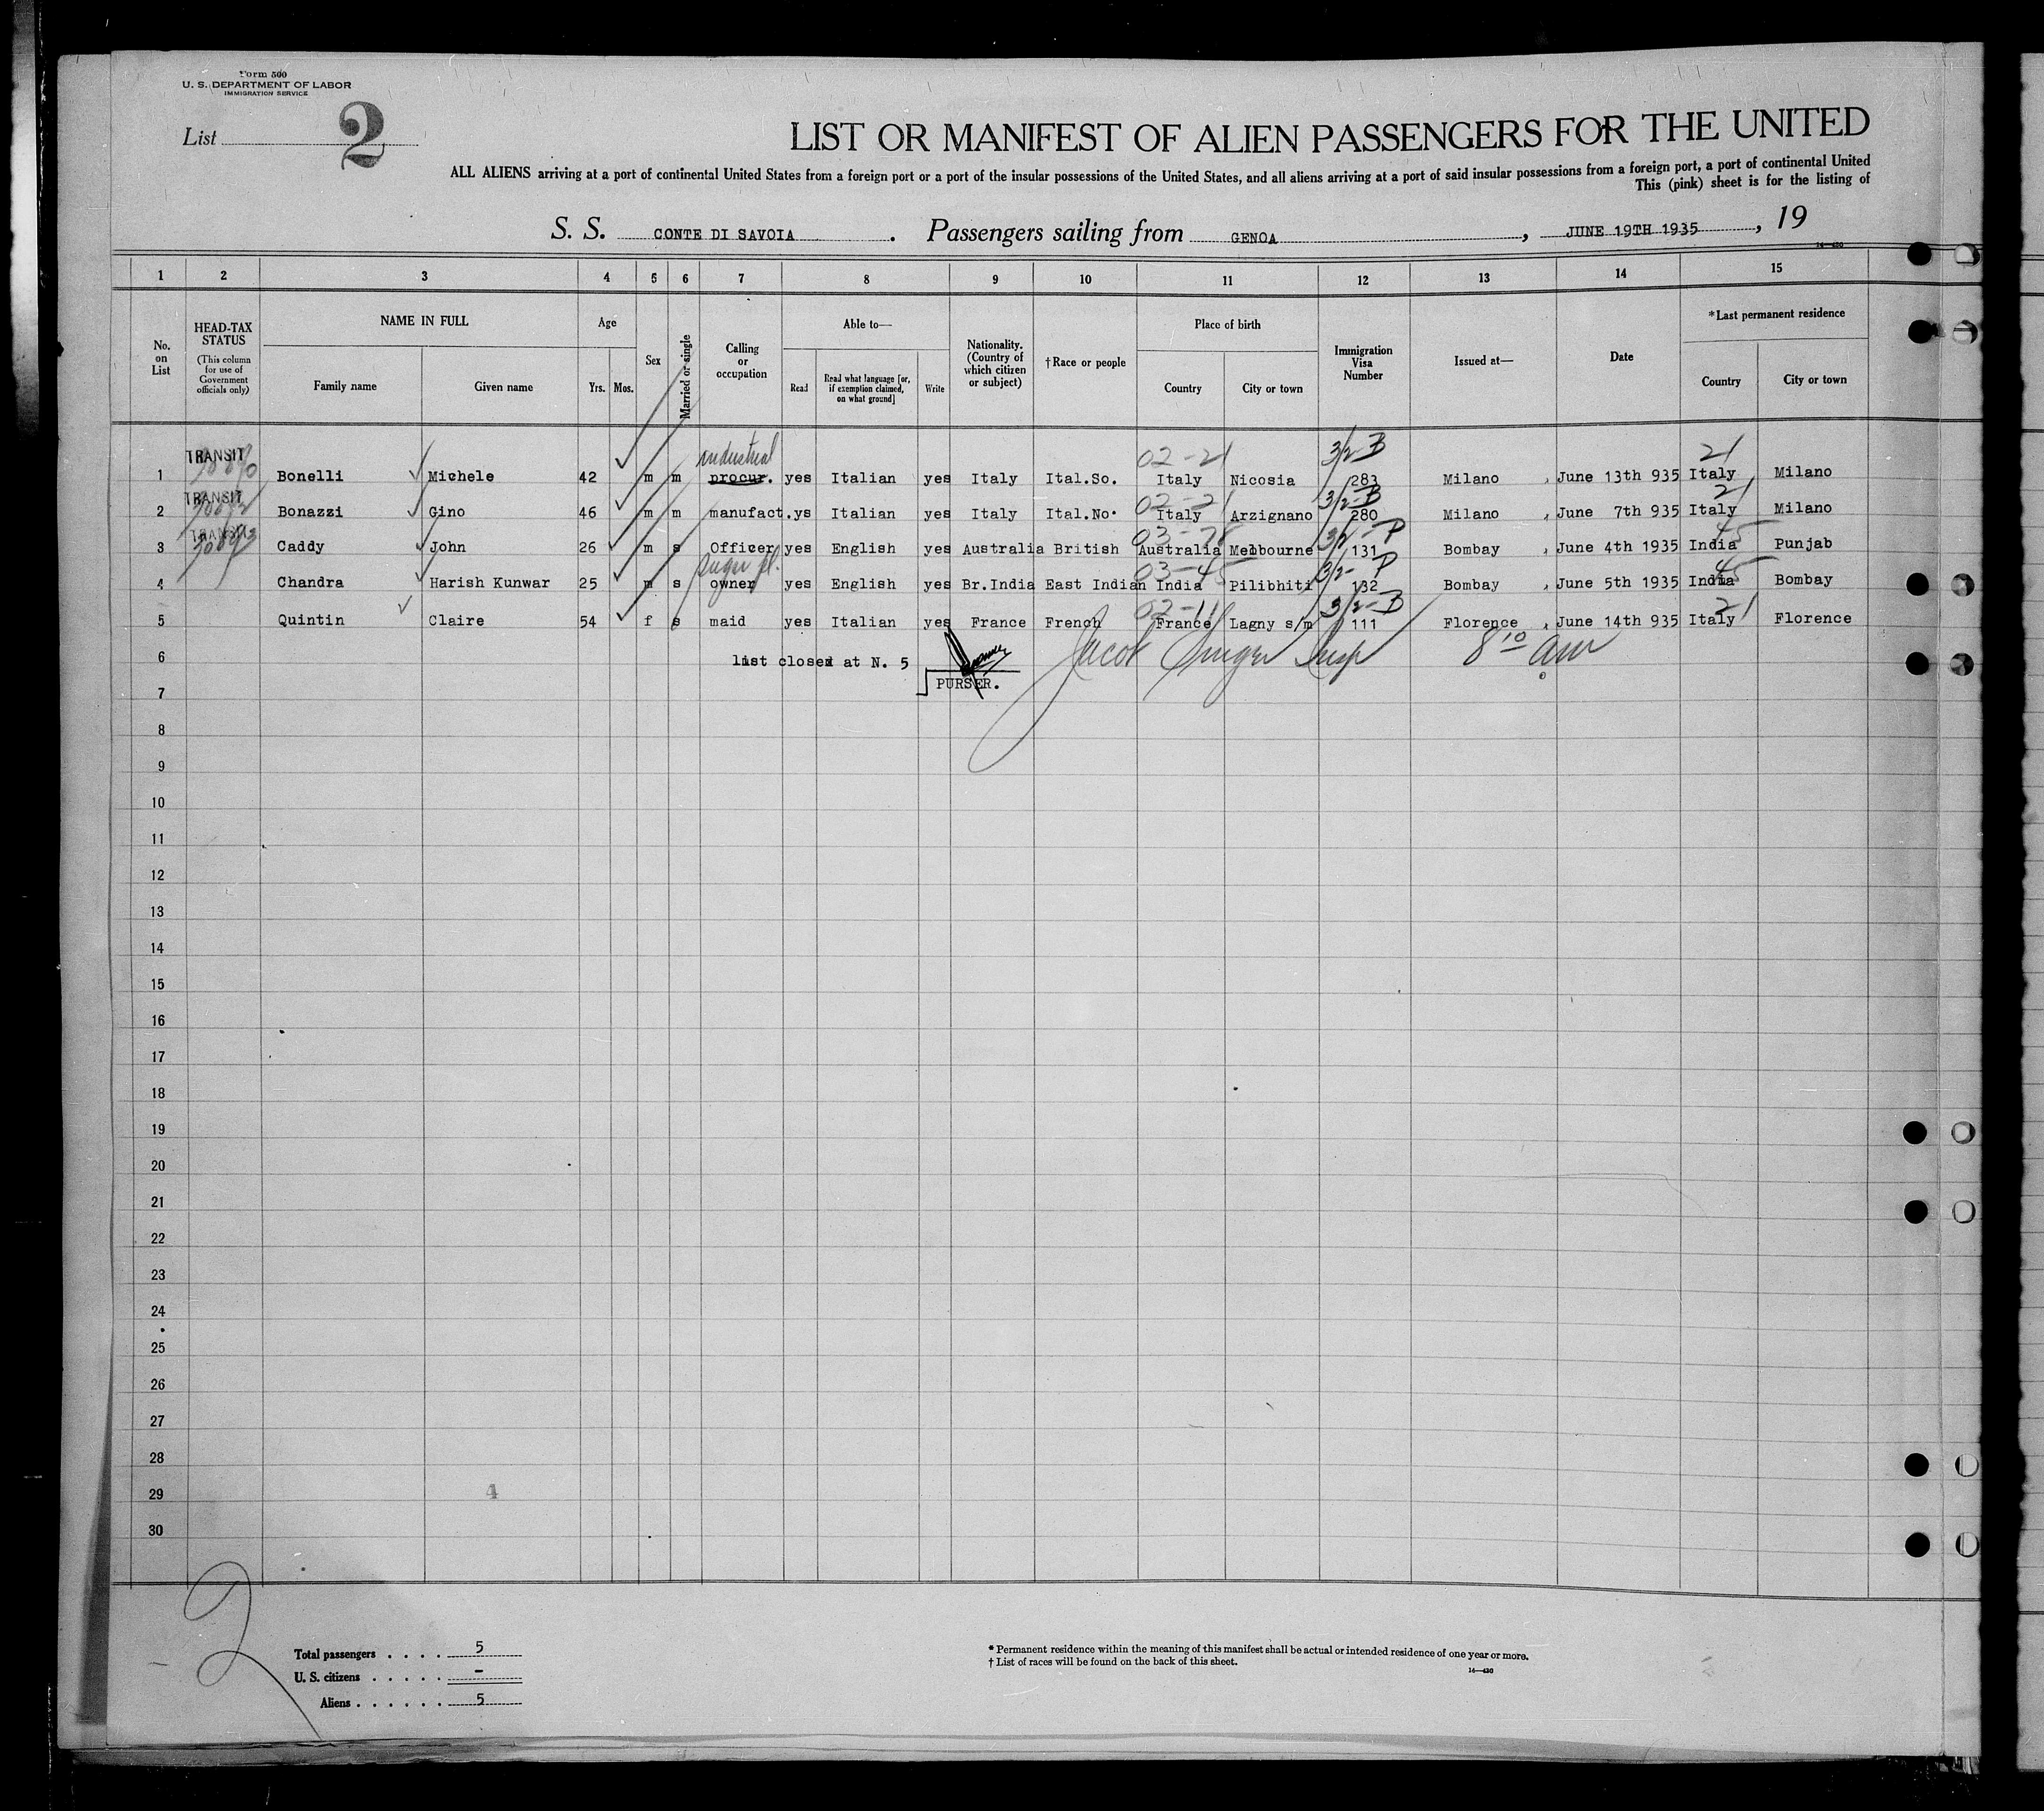 Form 500
U. S. DEPARTMENT OF LABOR
IMMIGRATION SERVICE
List 2
LIST OR MANIFEST OF ALIEN PASSENGERS FOR THE UNITED
ALL ALIENS arriving at a port of continental United States from a foreign port or a port of the insular possessions of the United States, and all aliens arriving at a port of said insular possessions from a foreign port, a port of continental United
This (pink) sheet is for the listing of
S. S. CONTE DI SAVOIA . Passengers sailing from GENOA , JUNE 19TH 1935 , 19
16—430
1 2 3 4 5 6 7 8 9 10 11 12 13 14 15
No. on List
HEAD-TAX STATUS
(This column for use of Government officials only)
NAME IN FULL
Family name Given name
Age
Yrs. Mos.
Sex
Married or single
Calling or occupation
Able to—
Read
Read what language [or, if exemption claimed, on what ground]
Write
Nationality. (Country of which citizen or subject)
†Race or people
Place of birth
Country City or town
Immigration Visa Number
Issued at—
Date
*Last permanent residence
Country City or town
TRANSIT industrial 02-21 3/2-B 21
1 Bonelli Michele 42 m m procur. yes Italian yes Italy Ital.So. Italy Nicosia 283 Milano , June 13th 935 Italy Milano
TRANSIT 02-21 3/2-B 21
2 Bonazzi Gino 46 m m manufact. ys Italian yes Italy Ital.No. Italy Arzignano 280 Milano , June 7th 935 Italy Milano
TRANSIT 3/2-P 45
3 Caddy John 26 m s Officer yes English yes Australia British Australia Melbourne 131 Bombay , June 4th 1935 India Punjab
03-45 3/2-P 45
4 Chandra Harish Kunwar 25 m s owner yes English yes Br.India East Indian India Pilibhiti 132 Bombay , June 5th 1935 India Bombay
02-11 3/2-B 21
5 Quintin Claire 54 f s maid yes Italian yes France French France Lagny s/m 111 Florence , June 14th 935 Italy Florence
6 list closed at N. 5 Jacob Singer Insp 8 10 am
PURSER.
7
8
9
10
11
12
13
14
15
16
17
18
19
20
21
22
23
24
25
26
27
28
29 4
30
2
Total passengers . . . . 5
U. S. citizens . . . . . -
Aliens . . . . . . 5
* Permanent residence within the meaning of this manifest shall be actual or intended residence of one year or more.
† List of races will be found on the back of this sheet.
16—430